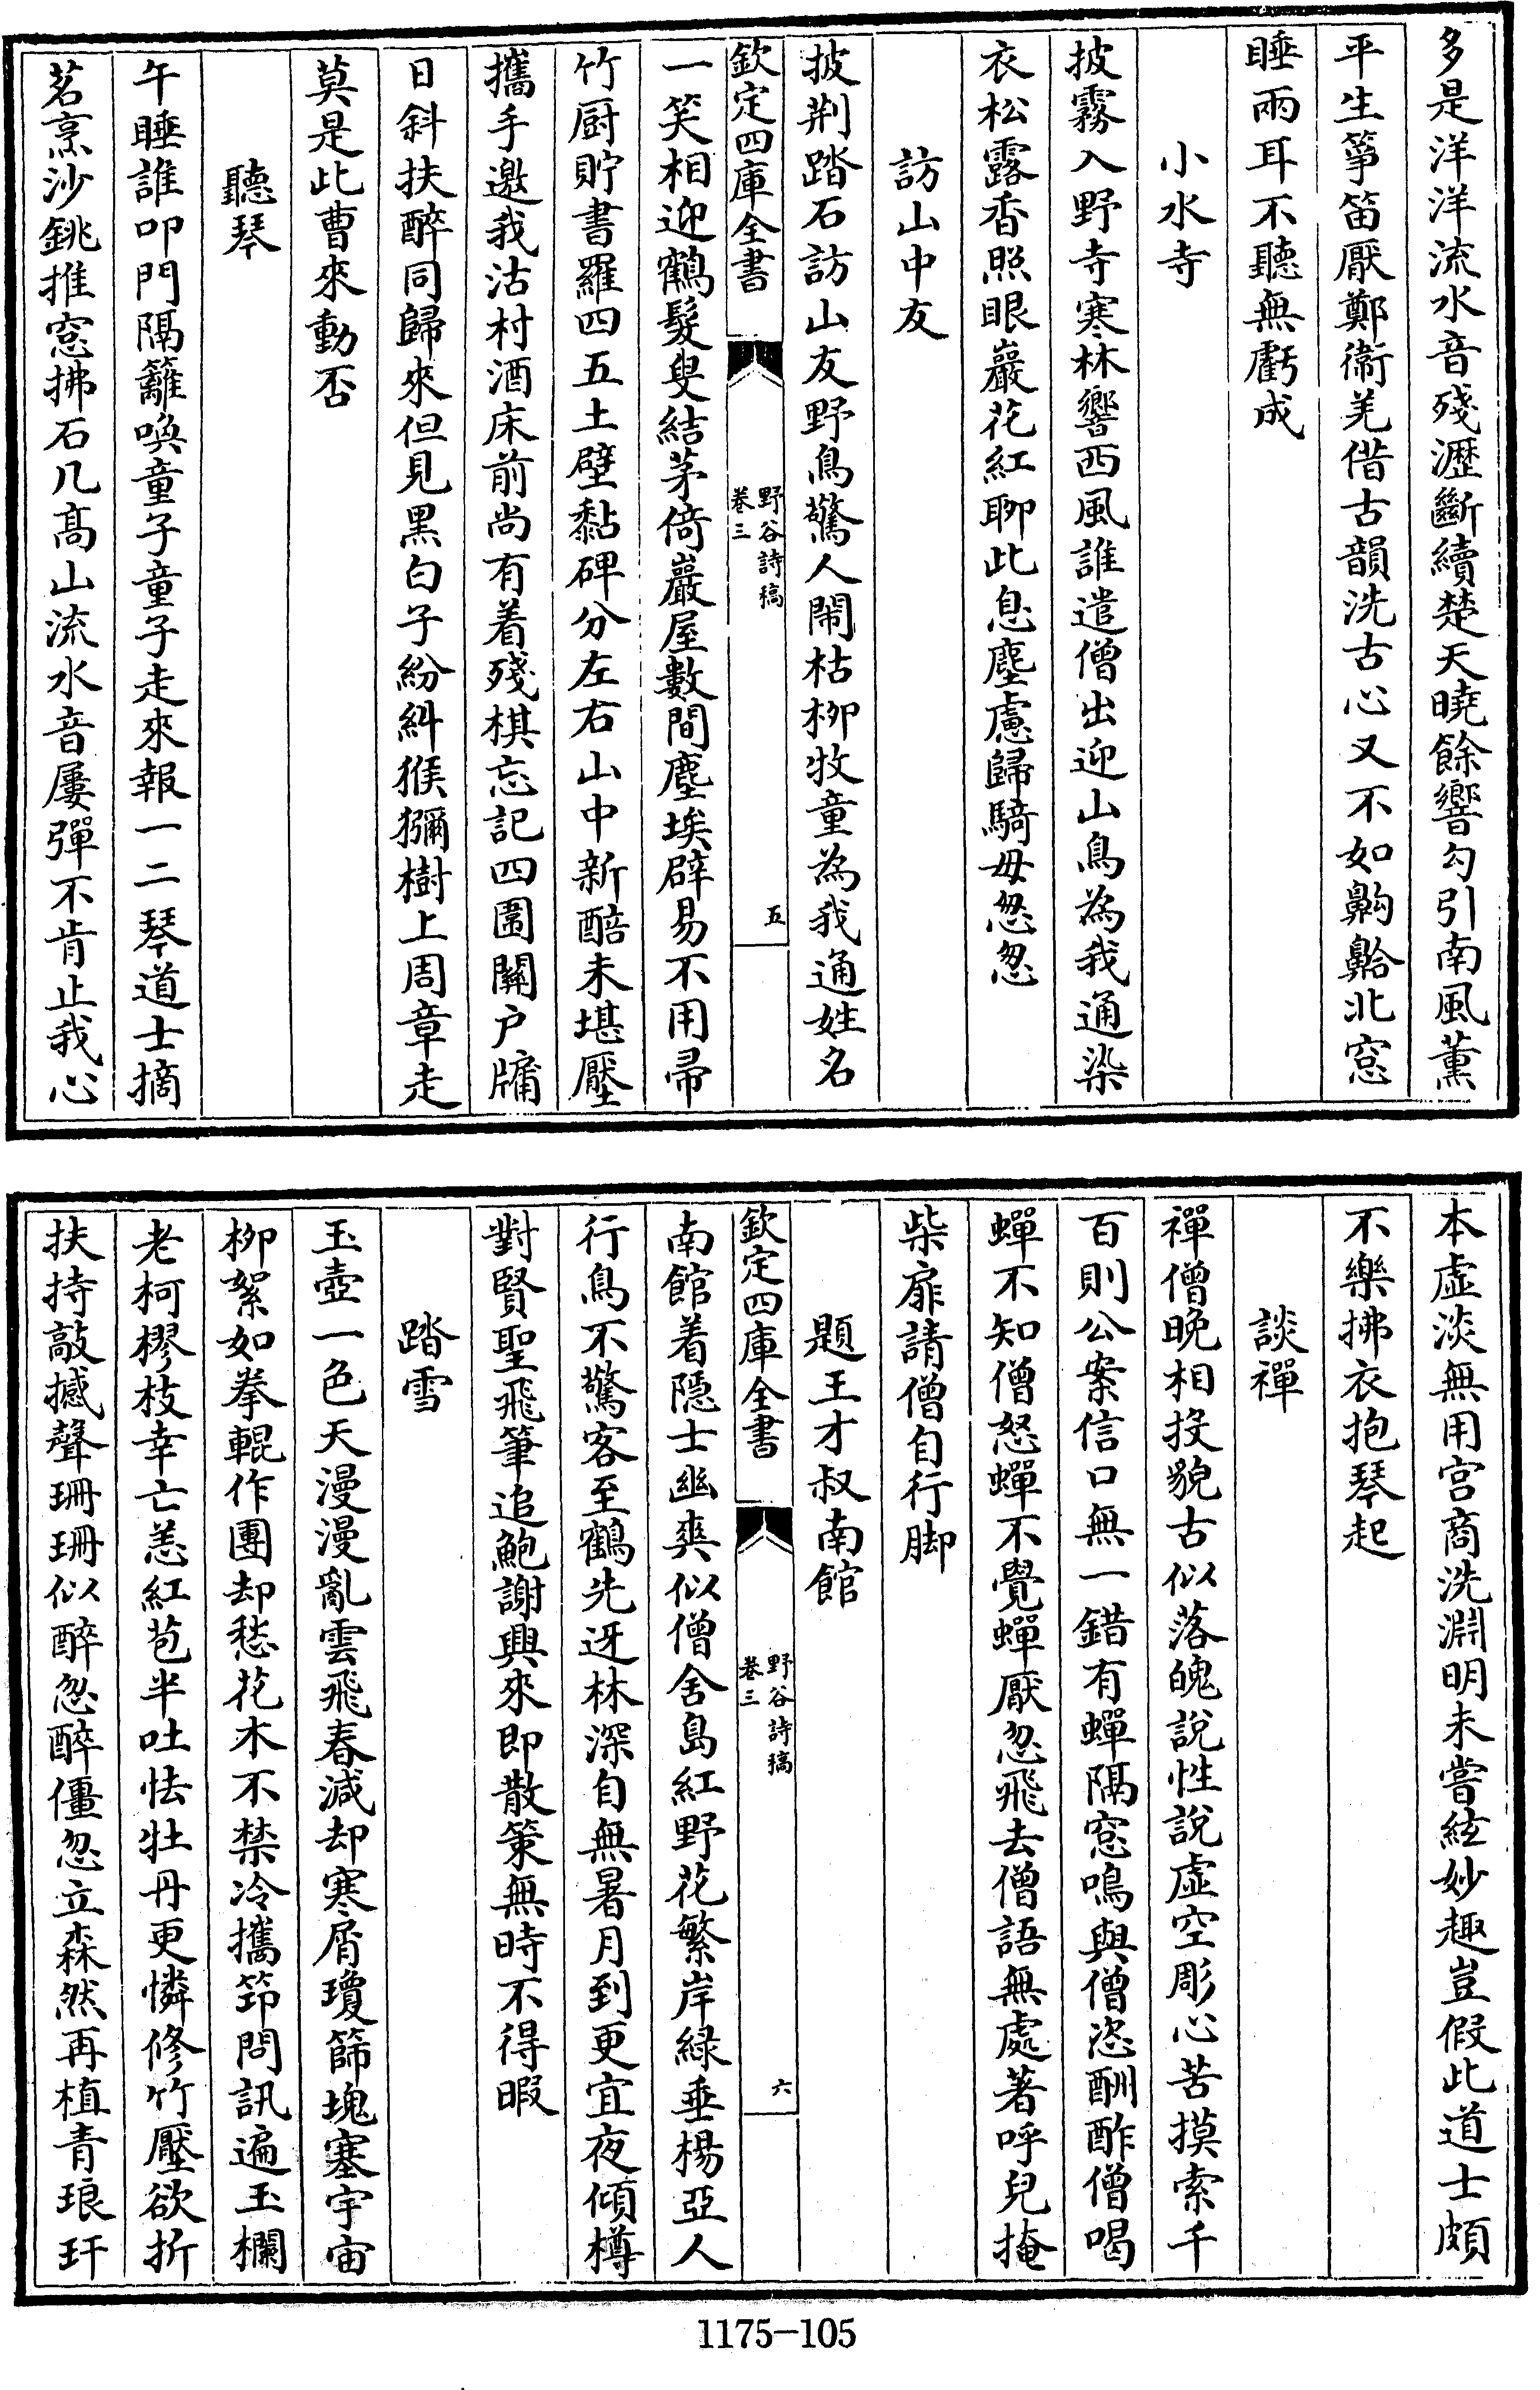 多是洋洋流水音殘瀝斷續楚天曉餘響勾引南風薰
平生箏笛厭鄭衛羌借古韻洗古心又不如齁齝北窓
睡兩耳不聽無虧成
小水寺
披霧入野寺寒林響西風誰遣僧出迎山鳥為我通染
衣松露香照眼巖花紅聊此息塵慮歸騎毋怱怱
訪山中友
披荆踏石訪山友野鳥驚人鬧枯栁牧童為我通姓名
欽定四庫全書
野谷詩稿
卷三
五
一笑相迎鶴髮叟結茅倚巖屋數間塵埃辟易不用帚
竹厨貯書羅四五土壁黏碑分左右山中新醅未堪壓
攜手邀我沽村酒床前尚有着殘棋忘記四圍關户牖
日斜扶醉同歸來但見黒白子紛糾猴獼樹上周章走
莫是此曹來動否
聽琴
午睡誰叩門隔籬喚童子童子走來報一二琴道士摘
茗烹沙銚推窓拂石几髙山流水音屢彈不肯止我心
本虛淡無用宫商洗淵明未嘗絃妙趣豈假此道士頗
不樂拂衣抱琴起
談禪
禪僧晩相投貌古似落魄說性說虛空彫心苦摸索千
百則公案信口無一錯有蟬隔窓鳴與僧恣酬酢僧喝
蟬不知僧怒蟬不覺蟬厭忽飛去僧語無處著呼兒掩
柴扉請僧自行脚
題王才叔南館
欽定四庫全書
野谷詩稿
卷三
六
南館着隠士幽爽似僧舍島紅野花繁岸緑垂楊亞人
行鳥不驚客至鶴先迓林深自無暑月到更宜夜傾樽
對賢聖飛筆追鮑謝興來即散策無時不得暇
踏雪
玉壺一色天漫漫亂雲飛春減却寒屑瓊篩塊塞宇宙
栁絮如拳輥作團却愁花木不禁冷攜筇問訊遍玉欄
老柯樛枝幸亡恙紅苞半吐怯牡丹更憐修竹壓欲折
扶持敲撼聲珊珊似醉忽醉僵忽立森然再植青琅玕
1175-105